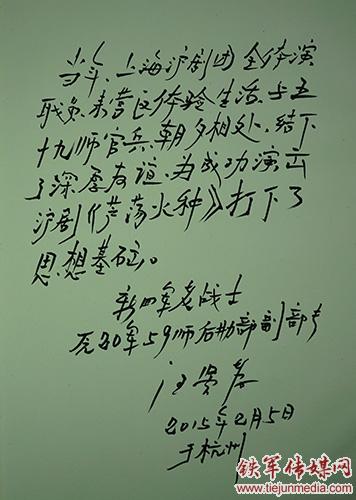 当年、上海沪剧团全体演
职员来营区体验生活、与五
十九师官兵朝夕相处、结下
了深厚友谊、为成功演出
沪剧《芦荡火种》打下了
思想基础。
新四军老战士
原20军59师后勤部副部长
汪
2015年2月5日
于杭州
铁军传媒网
www.tiejunmedia.com